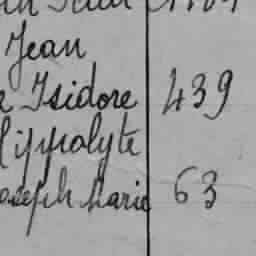 Jean
Isidore 439
Hippolyte
Joseph Marie 63